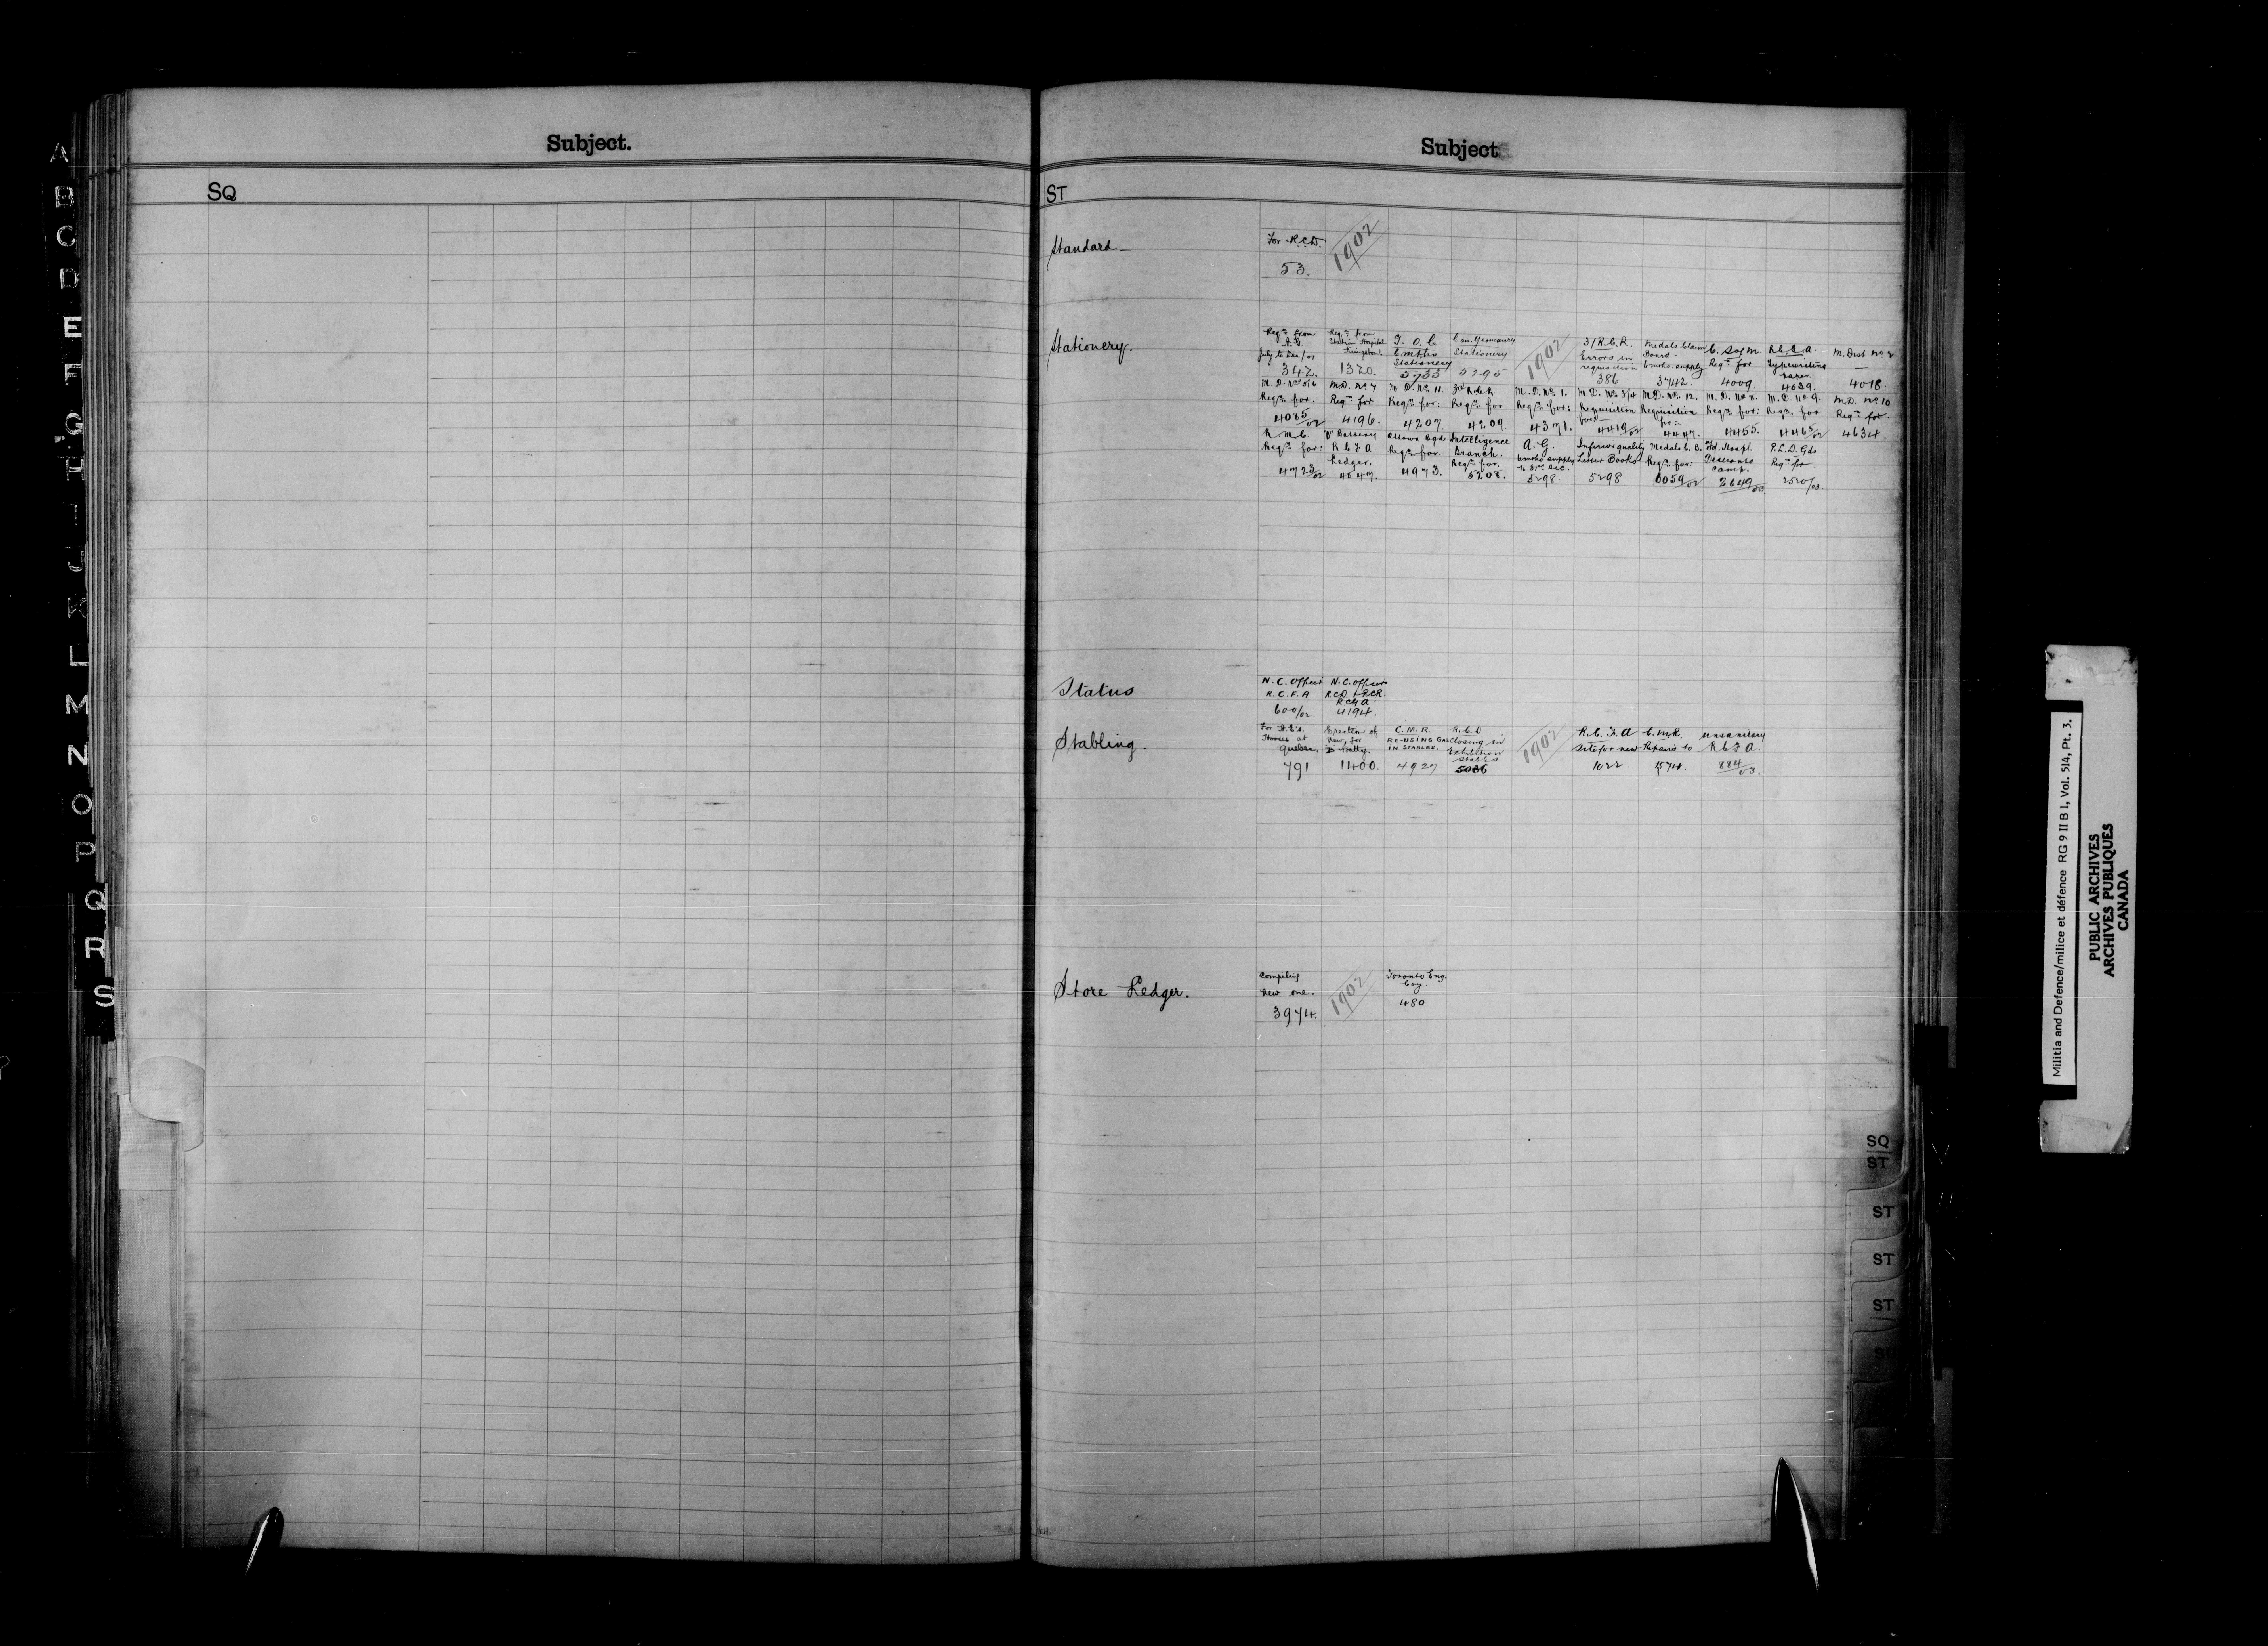 Subject.
SQ
Subject
ST
Standard —
For R.C.D.
53.
1902
Stationery.
Reqn from
A.G.
July to Dec/01
342.
Reqn from
Station Hospital
Kingston.
1320.
G. O. C
6 mths
Stationery
5733
Can. Yeomanry
Stationery
5295
1902
3/R.C.R.
Errors in
requisition
386
Medals Claim
Board
6 mths. supply
3742.
C. S. of M.
Reqn for
4009
R.C.G.A.
Typewriting
paper.
4039.
M. Dist No 2
—
4018.
M. D. Nos 5/6
Reqn for.
4085/02
M.D. No 7
Reqn for
4196.
M. D. No. 11.
Reqn for:
4207.
3rd R.C.R
Reqn for
4209.
M. D. No. 1.
Reqn for:
4371.
M. D. No. 3/4
Requisition
for:—
4419/02
M.D. No. 12.
Requisition
for:—
4447.
M. D. No 8.
Reqn for:
4455.
M. D. No 9.
Reqn for
4465/02
M.D. No 10
Reqn for.
4634.
R. M. C
Reqn for:
4723/02
"D" Battery
R C F A
Ledger.
4849.
Ottawa Bgde
Reqn for.
4973.
Intelligence
Branch.
Reqn for.
5208.
A. G.
6 mths supply
to 31st Dec.
5298
Inferior quality
Letter Books
5298
Medals C. B.
Reqn for:
6059/02
Fd. Hospl.
Deseronto
Camp.
2649/03
P.L.D. Gds
Reqn for
2520/03.
Status
N. C. Officer
R. C. F. A
600/02
N. C. Officer
RCD. & RCR.
RCGA.
4194.
Stabling.
Stores at
Quebec.
791
Erection of
new, for
Batty.
1400.
C. M. R.
RE-USING GAS
IN STABLES.
4927
R. C. D
Closing in
Exhibition
Stables
5086
1902
R. C. F. A
Site for new
1022.
C. M. R.
Repairs to
1574.
unsanitary
R C F A.
884/03.
Store Ledger.
Compiling
new one.
3974.
1902
Toronto Eng.
Coy.
480
A
B
C
D
E
F
G
H
I
J
K
L
M
N
O
P
Q
R
S
SQ
ST
ST
ST
ST
Militia and Defence/milice et défence RG 9 II B 1, Vol. 514, Pt. 3.
PUBLIC ARCHIVES
ARCHIVES PUBLIQUES
CANADA